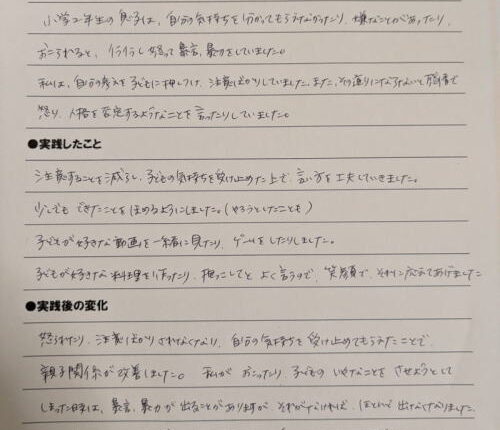 小学2年生の息子は、自分の気持ちを分かってもらえなかったり、嫌なことがあったり、
おこられると、イライラし怒って暴言、暴力をしていました。
私は、自分の考えを子どもに押しつけ、注意ばかりしていました。また、その通りにならないと
怒り、人格を否定するようなことを言ったりしていました。
●実践したこと
注意することを減らし、子どもの気持ちを受け止めた上で、言い方を工夫していきました。
少しでもできたことをほめるようにしました。(やろうとしたことも)
子どもが好きな動画を一緒に見たり、ゲームをしたりしました。
子どもが好きな料理を作ったり、抱っこしてとよく言うので、笑顔で、それに応えてあげました
●実践後の変化
怒られたり、注意ばかりされなくなり、自分の気持ちを受け止めてもらえたことで、
親子関係が改善しました。私がおこったり、子どものいやなことをさせようとして
しまった時は、暴言、暴力が出ることがありますが、それがなければ、ほとんど出なくなりました。